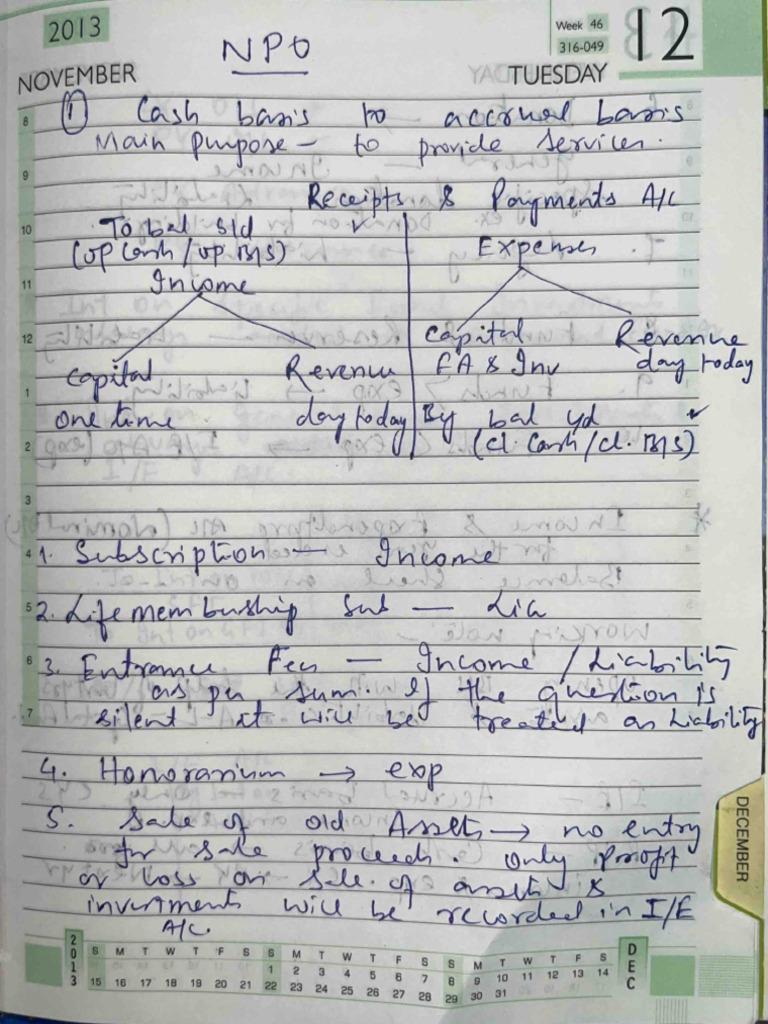 2013
NOVEMBER
NPO
Week 46
316-049
12
TUESDAY
8 ① Cash basis to accrual basis
Main purpose - to provide services.
9
Receipts & Payments A/C
10 To bal b/d ✓
(op Cash / op B/S) Expenses
11 Income
12 Capital Revenue
Capital Revenue FA & Inv day today
1
one time day today By bal c/d ✓
2 (cl. Cash / cl. B/S)
3
4 1. Subscription — Income
5 2. Life membership Sub — Lia
6 3. Entrance Fees — Income / Liability
as per sum. If the question is
7 silent it will be treated as Liability
4. Honorarium → exp
5. Sale of old Assets → no entry
for sale proceeds. Only profit
or loss on sale of assets &
investments will be recorded in I/E
A/C.
DECEMBER
2013 DEC
S M T W T F S S M T W T F S S M T W T F S
1 2 3 4 5 6 7 8 9 10 11 12 13 14
15 16 17 18 19 20 21 22 23 24 25 26 27 28 29 30 31